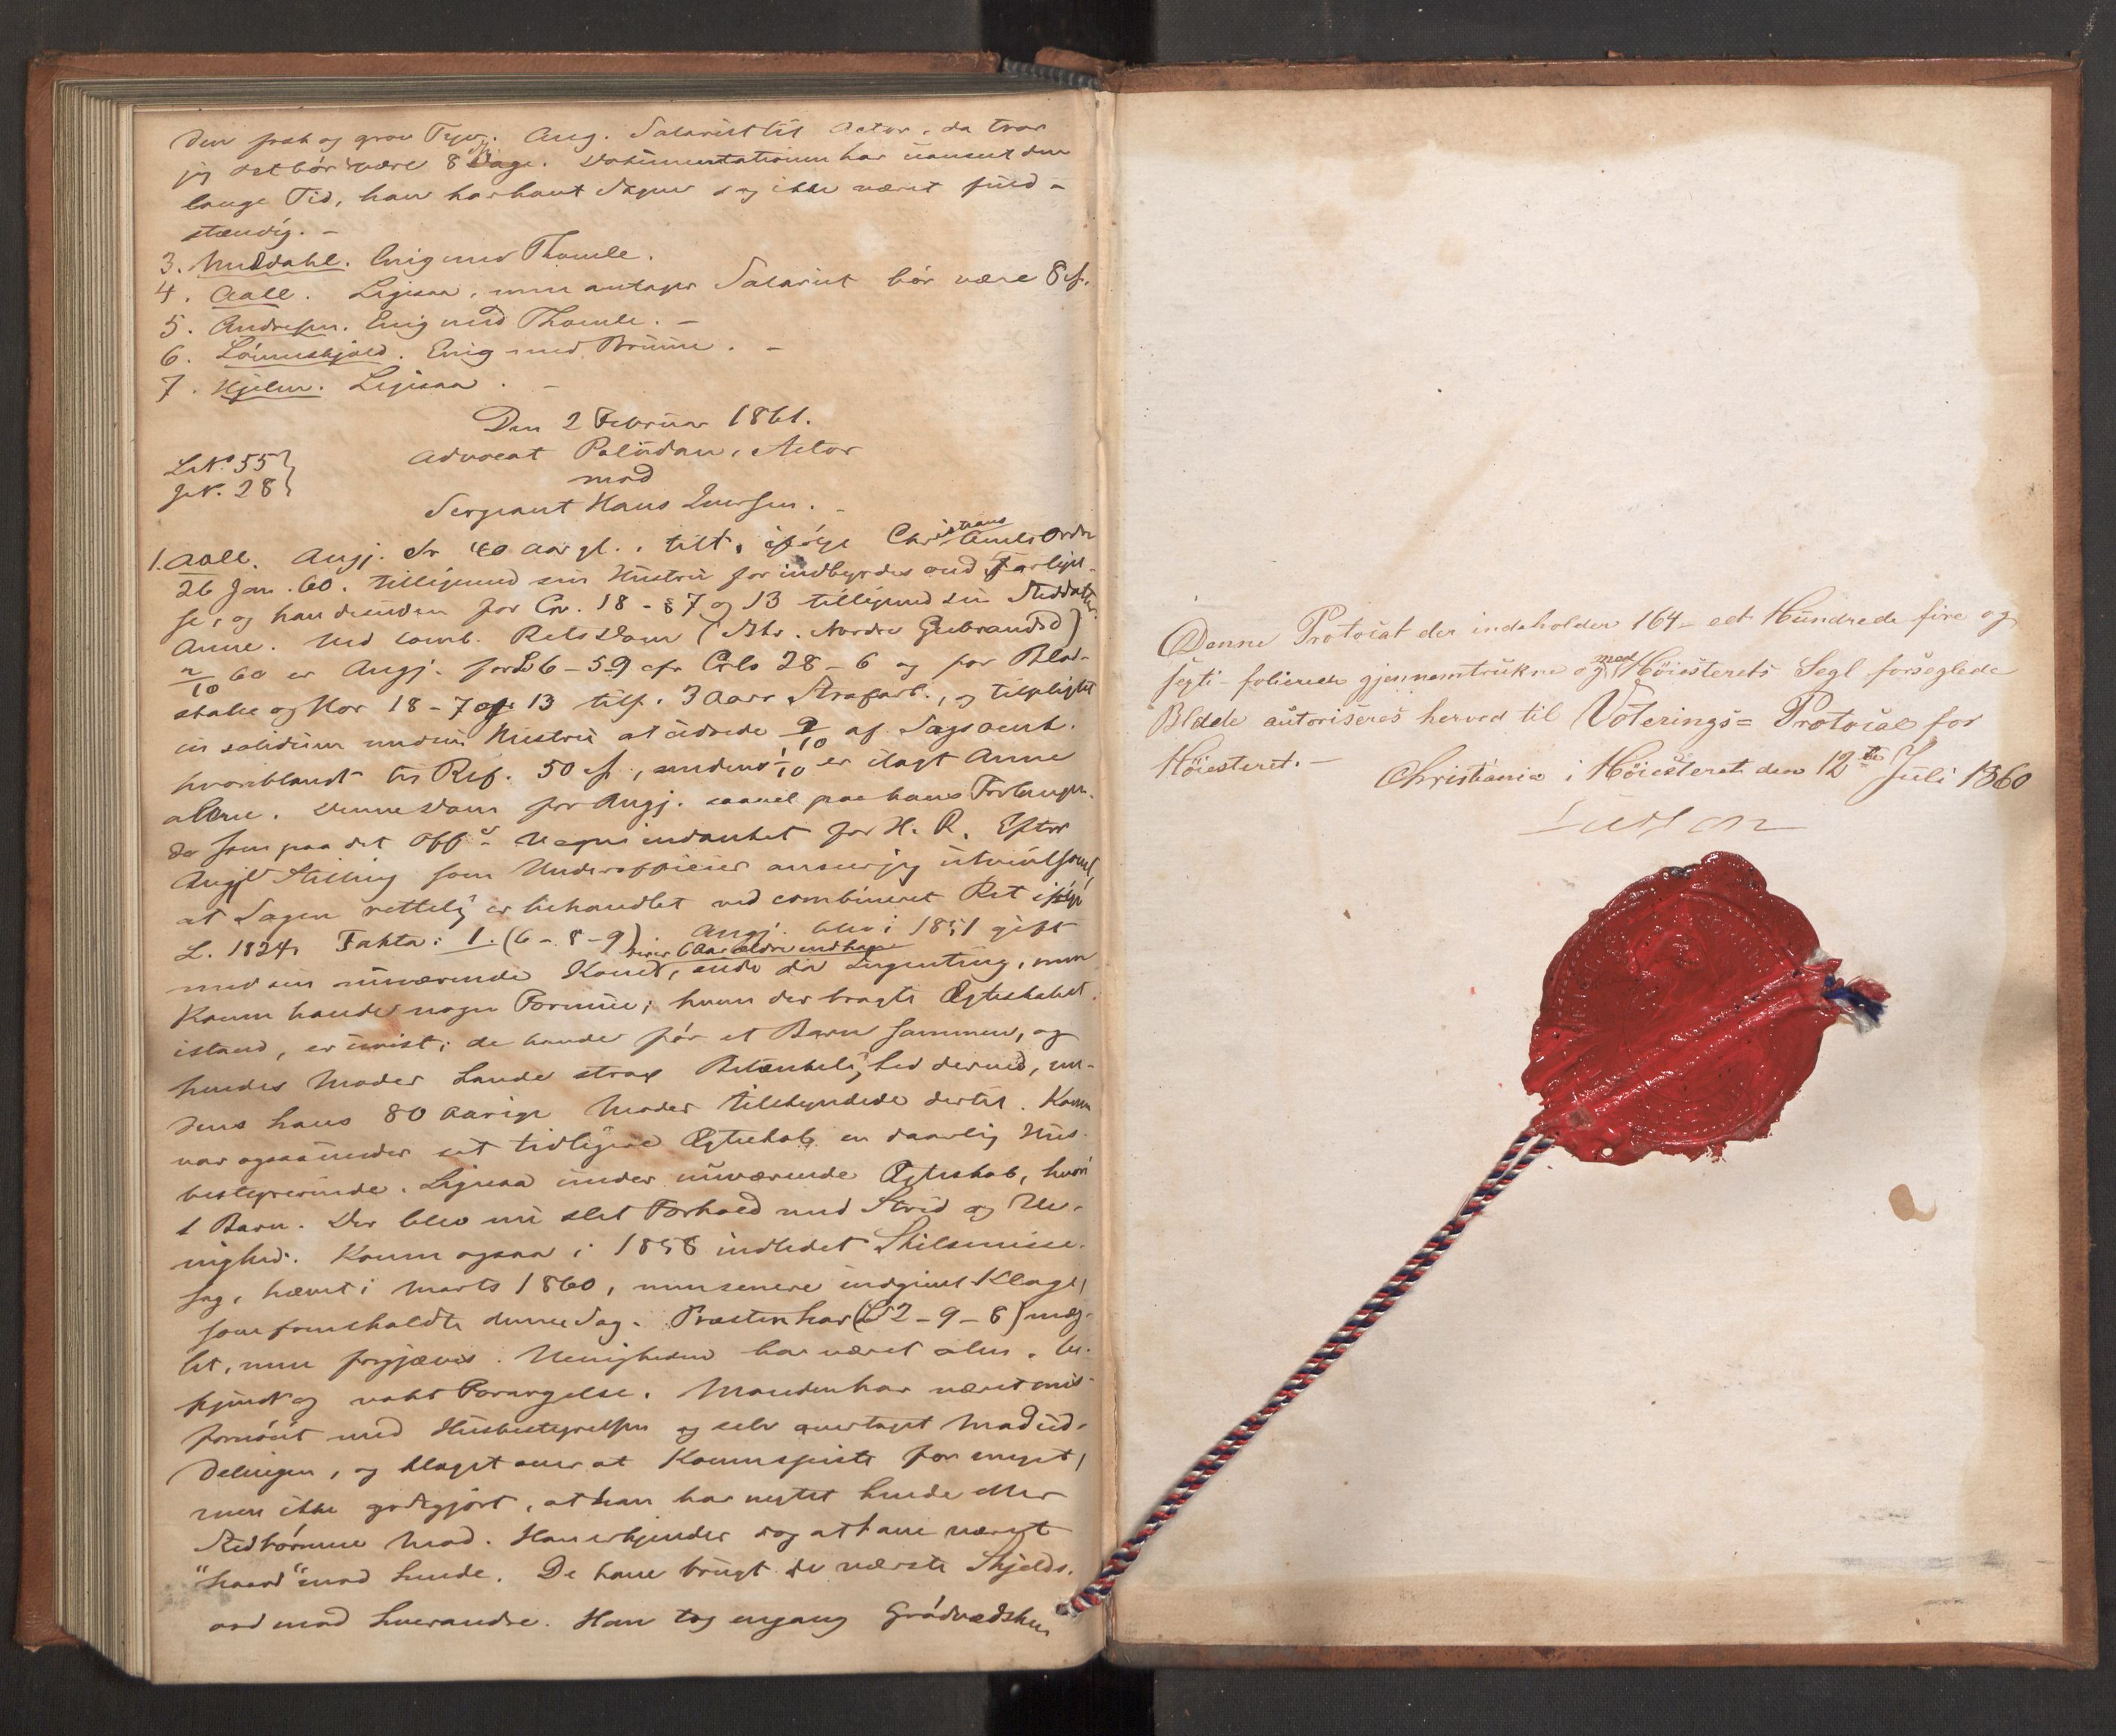 den først og grov Tyv. Ang. Salariet til Actor, da tror
jeg det bör være 8 Dage. Dokumentationen har uanset den
lange Tid, han har havt Sagen dog ikke været fuld-
stændig. –
3. Motzfeldt. Enig med Thomle.
4. Aall. Ligesaa, men antager Salariet bör være 8 Sp.
5. Andresen. Enig med Thomle. –
6. Lövenskjold. Enig med Bruun. –
7. Hjelm. Ligesaa. –
Den 2 Februar 1861.
L.N. 55
J.N. 28
Advocat Paludan, Actor
mod
Sergeant Hans Iversen. –
1. Aall. Angj. er 40 Aar gl., tilt. ifölge Christians Amts Ordre
26 Jan. 60. tilligemed sin Hustru for indbyrdes ond Forligel-
se, og han desuden for Cr. 18 - § 7 og 13 tilligemed sin Steddatter
Anne. Ved comb. Rets Dom (Nordre Gudbrandsd)
2/10 60 er Angj. for L 6-5 9 cfr Crls 28-6 og for Blod-
skam og Hor 18-7 cfr 13 tilf. 3 Aars Strafarb., og tilpligtet
in solidum med sin Hustru at udrede 9/10 af Sagsomk.
hvoriblandt til Ref. 50 Sp, medens 1/10 er ilagt Anne
alene. Denne Dom for Angj. saavel paa hans Forlangen-
de som paa det Offs Vegne indanket for H. R. Efter
Angjs Stilling som Underofficier anser jeg utvivlsomt,
at Sagen rettelig er behandlet ved combineret Ret ifölge
L. 1824. Fakta: 1. (6-8-9). Angj. blev i 1851 gift
med sin nuværende Kone, der er 6 Aar ældre end han, eiede da Ingenting, men
Konen havde nogen Formue; hvem der bragte Ægteskabet
istand, er uvist; de havde før et Barn sammen, og
hendes Moder havde strax Betænkelighed derved, me-
dens hans 80 aarige Moder tilskyndede dertil. Konen
var ogsaa under sit tidligere Ægteskab en daarlig Hus-
bestyrerinde. Ligesaa under nuværende Ægteskab, hvori
1 Barn. Der blev nu slet Forhold med Strid og Ue-
nighed. Konen ogsaa i 1858 indledet Skilsmisse-
sag, hævet i Marts 1860, men senere indgivet Klage,
som fremkaldte denne Sag. Præsten har (L 2-9-8) mæg-
let, men forgjæves. Uenigheden har været alm. be-
kjendt og vakt Forargelse. Manden har været mis-
fornöiet med Husbestyrelsen og selv overtaget Madud-
delingen, og klaget over at Konen spiste for meget,
men ikke godtgjort, at han har negtet hende eller
Stedbörnene Mad. Han erkjender dog at have været
"haard" mod hende. De have brugt de værste Skjelds-
ord mod hverandre. Han tog engang Grödvedskeen
Denne Protocol der indeholder 164 – eet Hundrede fire og
segti – folierede gjennemtrukne og med Höiesterets Segl forseglede
Blade autoriseres herved til Voterings= Protocol for
Höiesteret. –
Christiania i Höiesteret den 12te Juli 1860